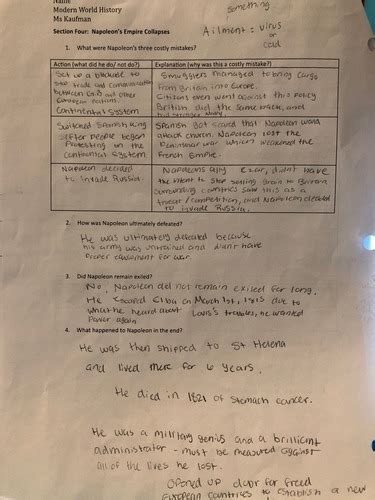 Name
Modern World History
Ms Kaufman
Something.
Ailment = virus
or
cold
Section Four: Napoleon's Empire Collapses
1. What were Napoleon's three costly mistakes?
Action (what did he do/ not do?)
Explanation (why was this a costly mistake?)
Set up a blockade to
stop trade and communication
between G.B and other
European nations.
Continental System
Smugglers managed to bring cargo
from Britain into Europe.
Citizens even went against this policy
British did the same back, and
had stronger Navy
Switched Spanish King
after People began
Protesting on the
continental system.
Spanish got scared that Napoleon would
attack church. Napoleon lost the
Peninsular war which weakened the
French Empire.
Napoleon decided
to invade Russia.
Napoleons ally czar, didn't have
the intent to stop selling grain to Britain
surrounding countries saw this as a
/competition, and Napoleon decided
to invade Russia.
2. How was Napoleon ultimately defeated?
He was ultimately defeated because
his army was untrained and didn't have
proper equipment for war.
3. Did Napoleon remain exiled?
No, Napoleon did not remain exiled for long.
He escaped Elba on March 1st, 1815 due to
what he heard about Louis's troubles, he wanted
Power again
4. What happened to Napoleon in the end?
He was then shipped to St Helena
and lived there for 6 years.
He died in 1821 of stomach cancer.
He was a military genius and a brillient
administrator - must be measured against
all of the lives he lost.
opened up door for freed
European countries to establish a new